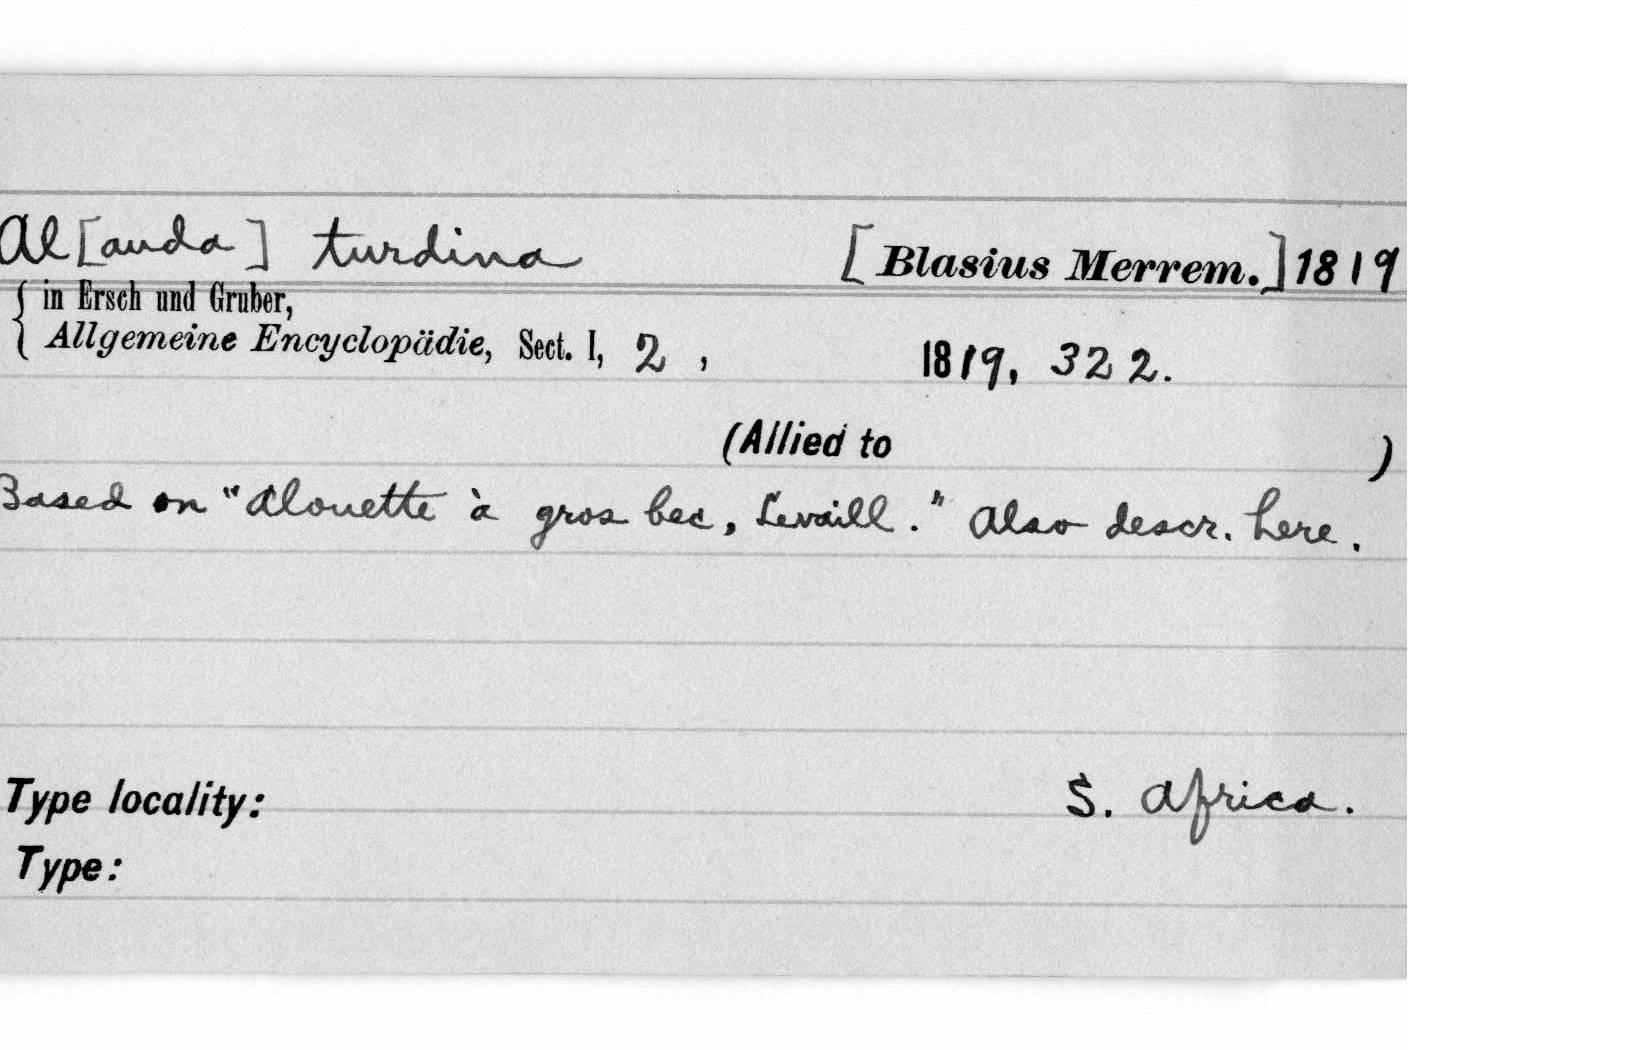 Al[auda] turdina [Blasius Merrem.] 1819
{ in Ersch und Gruber,
Allgemeine Encyclopädie, Sect. I, 2, 1819, 322.
(Allied to )
Based on "Alouette à gros bec, Levaill." Also descr. here.
Type locality: S. Africa.
Type: